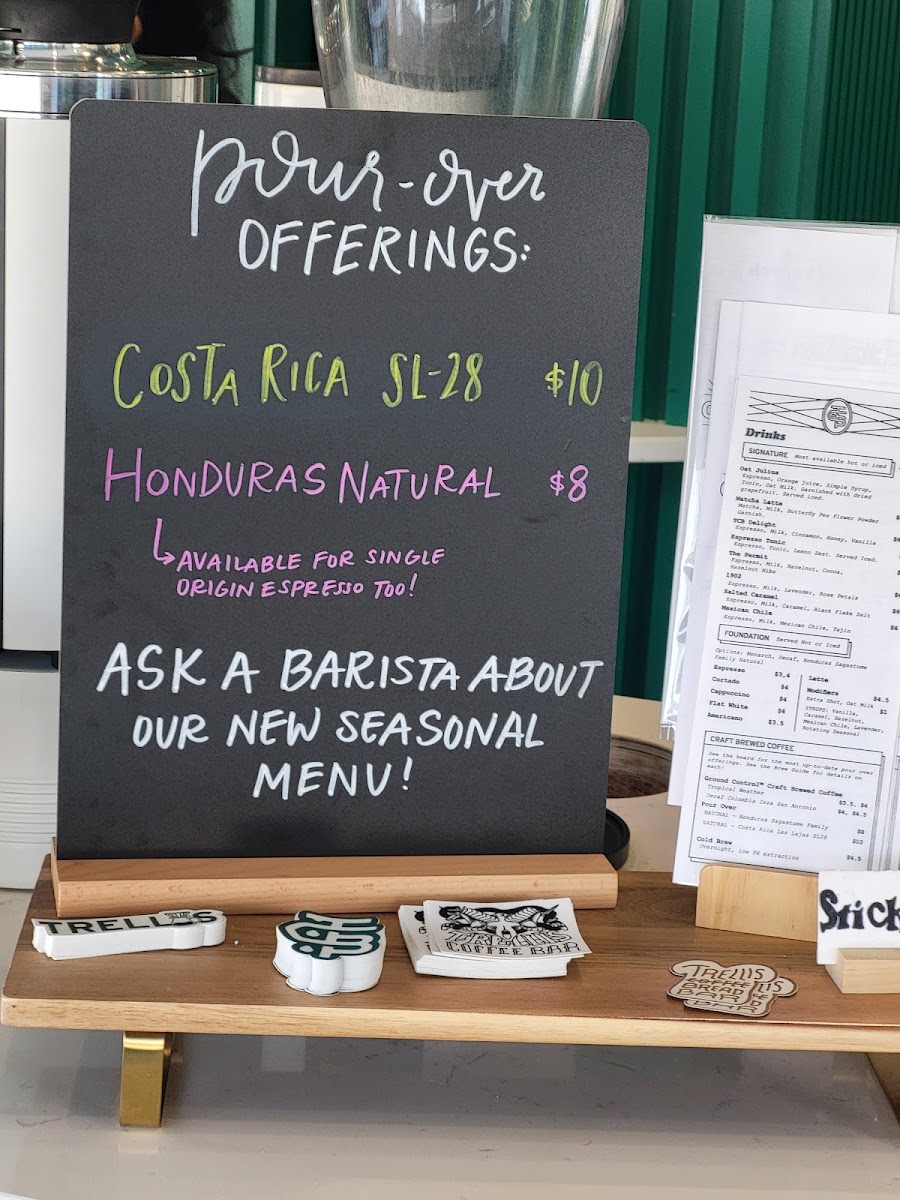 pour-over
OFFERINGS:
COSTA RICA SL-28 $10
HONDURAS NATURAL $8
AVAILABLE FOR SINGLE
ORIGIN ESPRESSO TOO!
ASK A BARISTA ABOUT
OUR NEW SEASONAL
MENU!
Drinks
SIGNATURE Most available hot or iced
Oat Julius
Espresso, Orange juice, Simple Syrup,
Tonic, Oat Milk. Garnished with dried
grapefruit. Served iced.
Matcha Latte
Matcha, Milk, Butterfly Pea Flower Powder
Garnish.
TCB Delight
Espresso, Milk, Cinnamon, Honey, Vanilla
Espresso Tonic
Espresso, Tonic, Lemon Zest. Served Iced.
The Permit
Espresso, Milk, Hazelnut, Cocoa,
Hazelnut Nibs
1902
Espresso, Milk, Lavender, Rose Petals
Salted Caramel
Espresso, Milk, Caramel, Black Flake Salt
Mexican Chile
Espresso, Milk, Mexican Chile, Tajin
FOUNDATION Served Hot or Iced
Options: Monarch, Decaf, Honduras Sagastume
Family Natural
Espresso $3,4
Cortado $4
Cappuccino $4
Flat White $4
Americano $3.5
Latte $4.5
Modifiers
Extra Shot, Oat Milk $1
SYRUPS: Vanilla,
Caramel, Hazelnut,
Mexican Chile, Lavender,
Rotating Seasonal
CRAFT BREWED COFFEE
See the board for the most up-to-date pour over
offerings. See the Brew Guide for details on
each!
Ground Control™ Craft Brewed Coffee
Tropical Weather $3.5, $4
Decaf Colombia Inza San Antonio $4, $4.5
Pour Over
NATURAL - Honduras Sagastume Family $8
NATURAL - Costa Rica Las Lajas SL28 $10
Cold Brew
Overnight, low PH extraction $4.5
TRELLIS
TCB
TRELLIS
COFFEE BAR
TRELLIS
COFFEE
BREAD
BAR
Stick